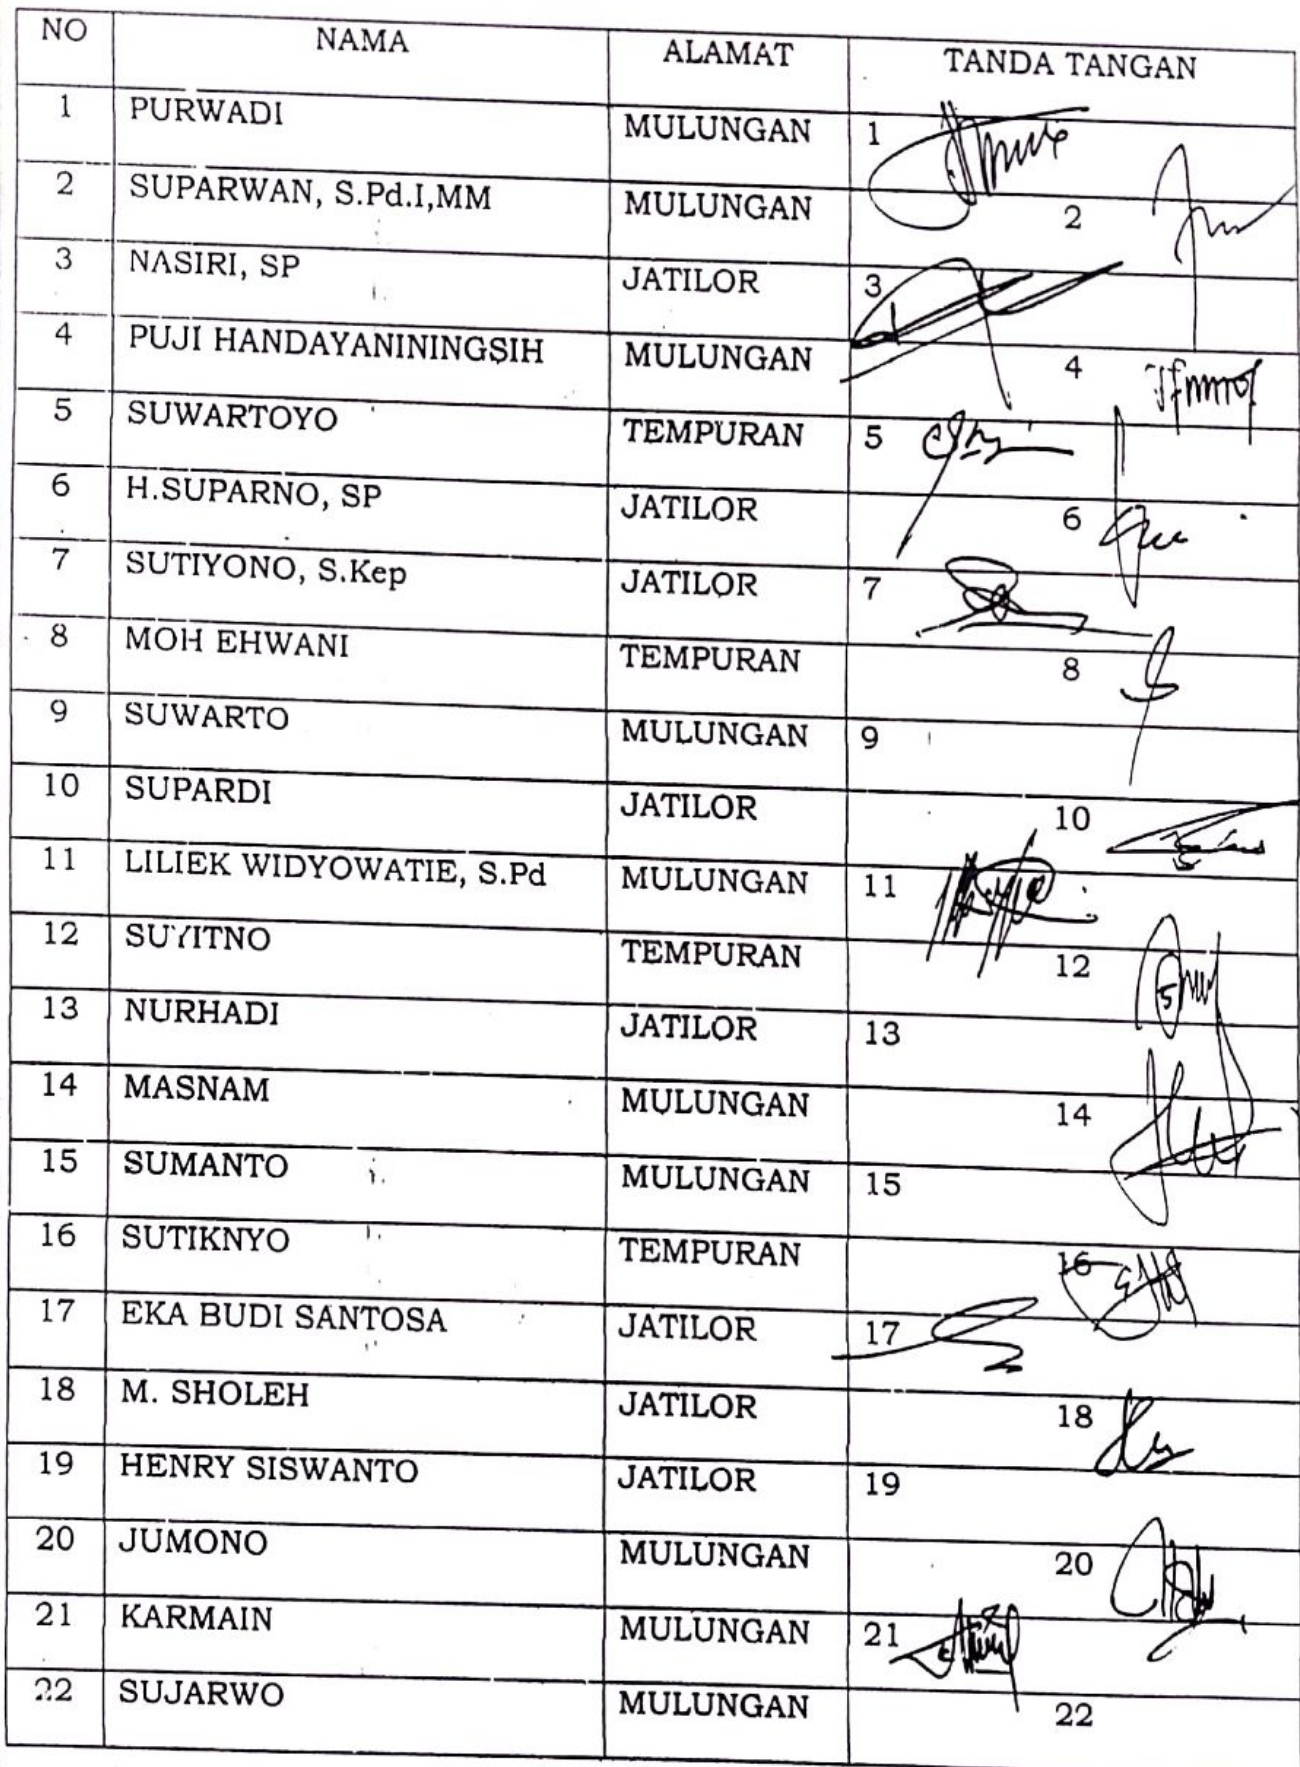 NO NAMA ALAMAT TANDA TANGAN
1 PURWADI MULUNGAN 1
2 SUPARWAN, S.Pd.I,MM MULUNGAN 2
3 NASIRI, SP JATILOR 3
4 PUJI HANDAYANININGSIH MULUNGAN 4
5 SUWARTOYO TEMPURAN 5
6 H.SUPARNO, SP JATILOR 6
7 SUTIYONO, S.Kep JATILOR 7
8 MOH EHWANI TEMPURAN 8
9 SUWARTO MULUNGAN 9
10 SUPARDI JATILOR 10
11 LILIEK WIDYOWATIE, S.Pd MULUNGAN 11
12 SUYITNO TEMPURAN 12
13 NURHADI JATILOR 13
14 MASNAM MULUNGAN 14
15 SUMANTO MULUNGAN 15
16 SUTIKNYO TEMPURAN 16
17 EKA BUDI SANTOSA JATILOR 17
18 M. SHOLEH JATILOR 18
19 HENRY SISWANTO JATILOR 19
20 JUMONO MULUNGAN 20
21 KARMAIN MULUNGAN 21
22 SUJARWO MULUNGAN 22